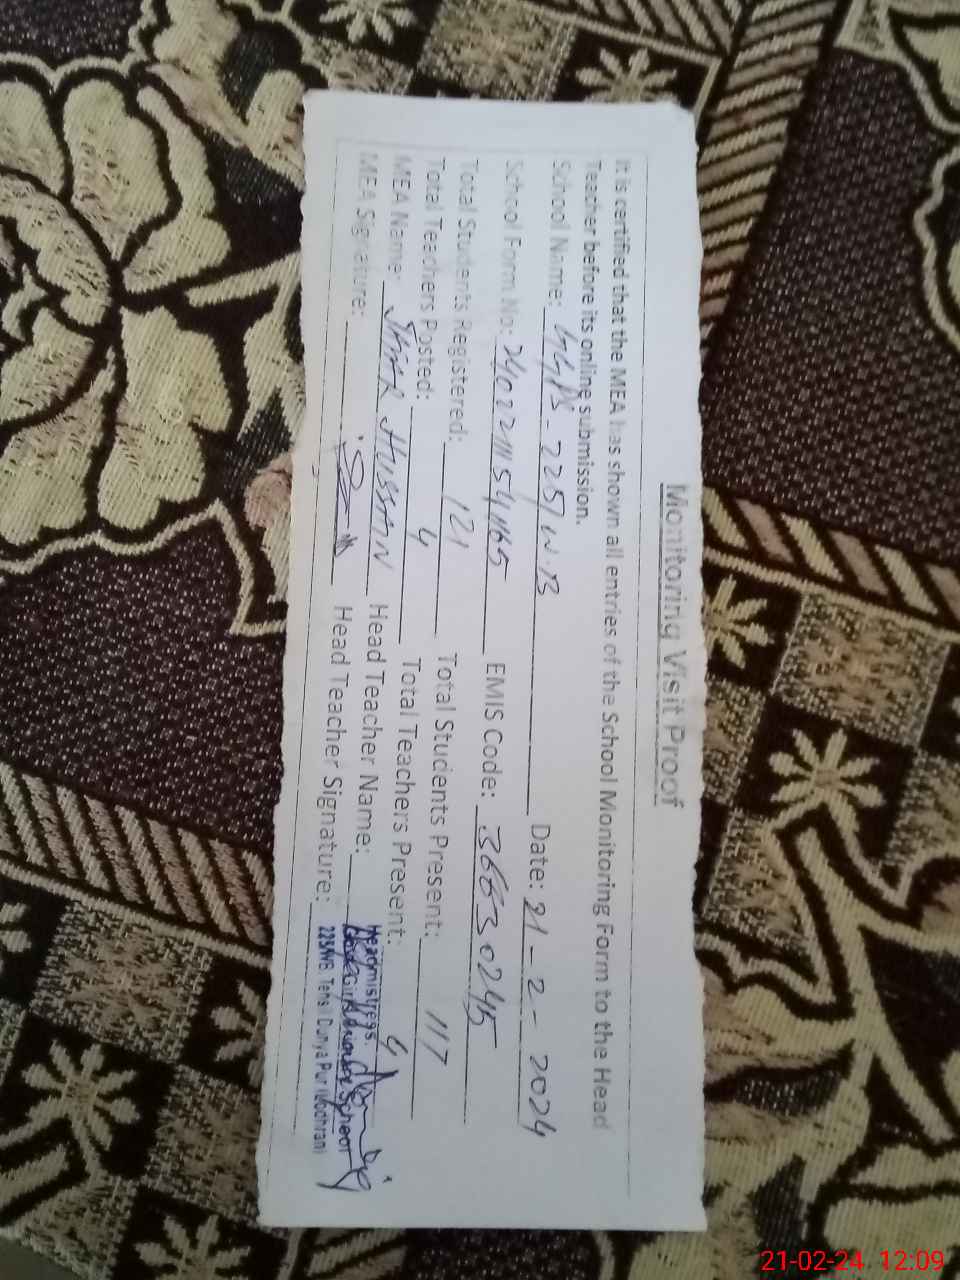 Monitoring Visit Proof
It is certified that the MEA has shown all entries of the School Monitoring Form to the Head
Teacher before its online submission.
School Name: GGPS-225/W.B Date: 21-2-2024
School Form No: EMIS Code: 36630245
Total Students Registered: 121 Total Students Present: 117
Total Teachers Posted: 4 Total Teachers Present: 4
MEA Name: HUSSAIN Head Teacher Name:
MEA Signature: Head Teacher Signature:
Headmistress.
Govt. Girls School
225/WB Tehsil Dunya Pur (Lodhran)
21-02-24 12:09